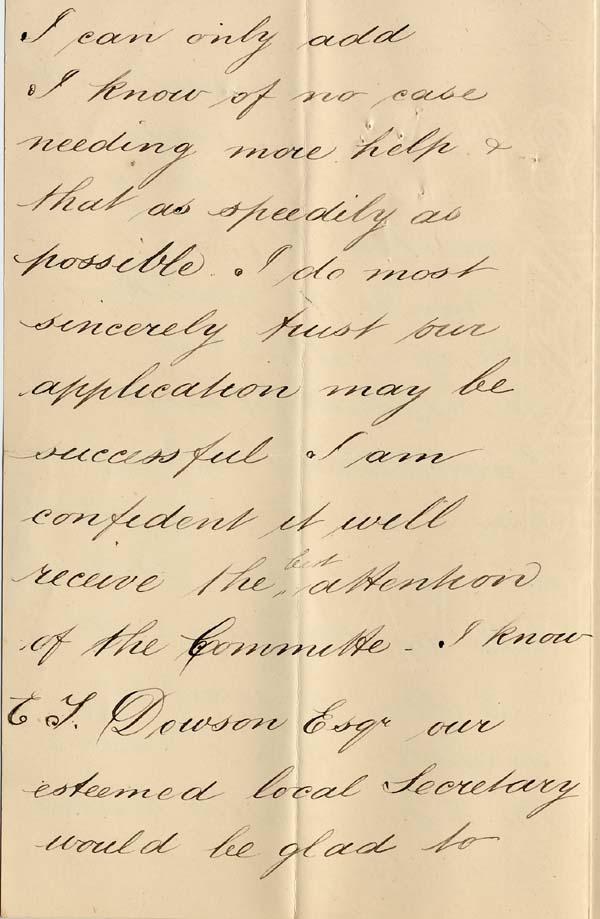 I can only add
I know of no case
needing more help &
that as speedily as
possible. I do most
sincerely trust our
application may be
successful I am
confident it will
receive the best attention
of the Committe - I know
E T. Dowson Esqr our
esteemed local Secretary
would be glad to